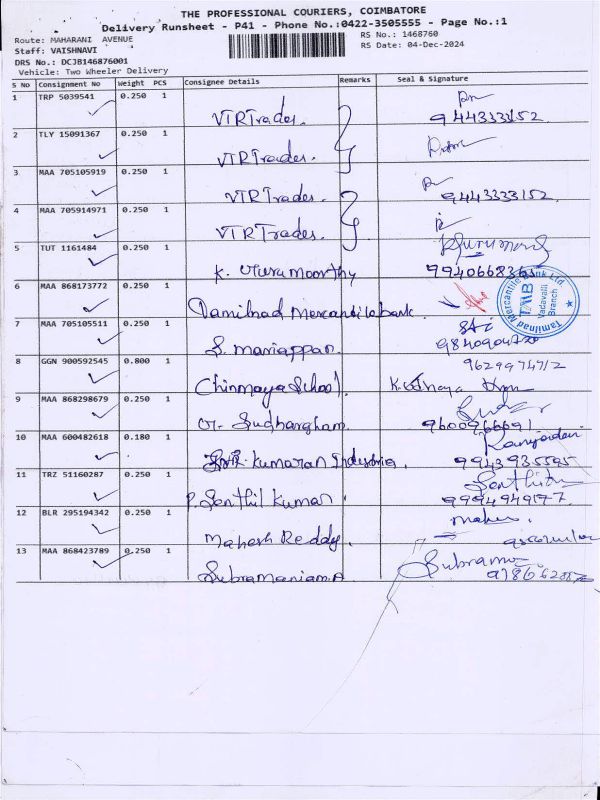 THE PROFESSIONAL COURIERS, COIMBATORE
Delivery Runsheet - P41 - Phone No.:0422-3505555 - Page No.:1
Route: MAHARANI AVENUE
RS No.: 1468760
Staff: VAISHNAVI
RS Date: 04-Dec-2024
DRS No.: DCJB146876001
Vehicle: Two Wheeler Delivery
S No Consignment No Weight PCS Consignee Details Remarks Seal & Signature
1 TRP 5039541 0.250 1
VTR Trades.
2 TLY 15091367 0.250 1
VTR Trades.
3 MAA 705105919 0.250 1
VTR Trades. 9443333152
4 MAA 705914971 0.250 1
VTR Trades.
5 TUT 1161484 0.250 1
K. Moorthy
6 MAA 868173772 0.250 1
Tamilnad Mercantile bank
Tamilnad Mercantile Bank Ltd.
TMB
Vadavalli
Branch
7 MAA 705105511 0.250 1
S. Mariappan. 9840904720
8 GGN 900592545 0.800 1
Chinmaya School.
9 MAA 868298679 0.250 1
Sudhargham.
10 MAA 600482618 0.180 1
Kumaran Industries. 9943935595
11 TRZ 51160287 0.250 1
P. Senthil Kumar. Senthil
12 BLR 295194342 0.250 1
Mahesh Reddy.
13 MAA 868423789 0.250 1
Subramaniam.A